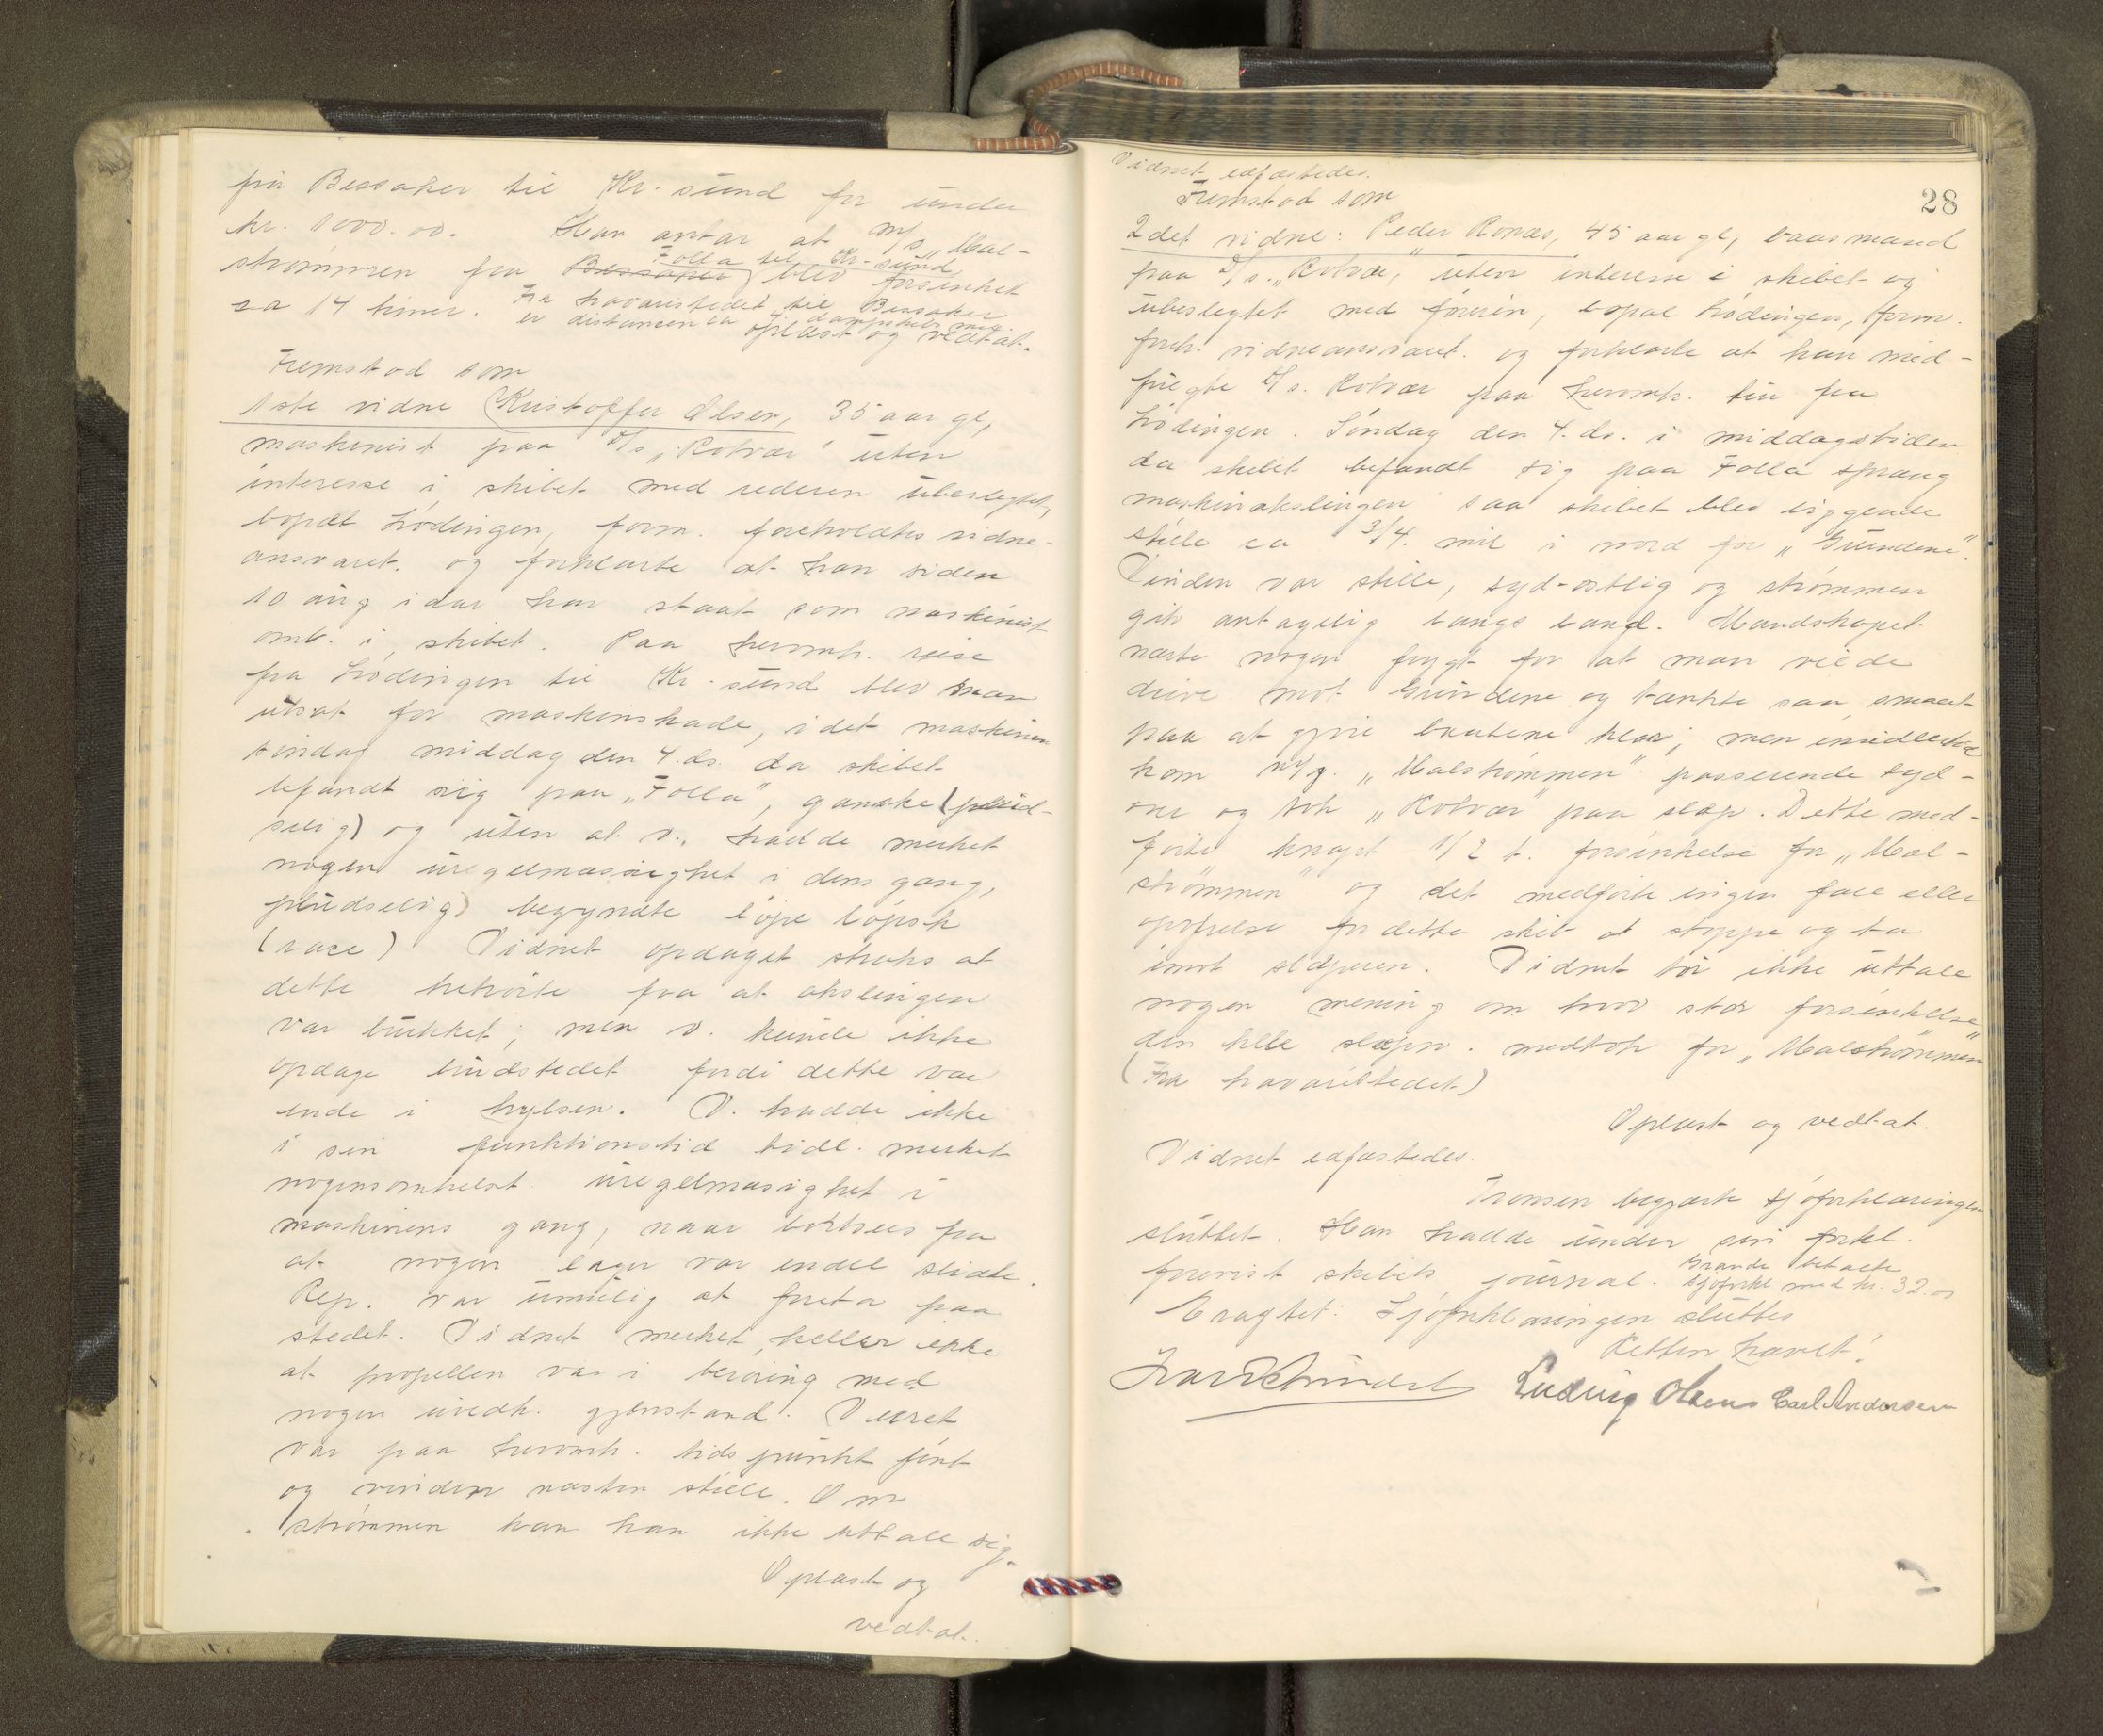 fra Bessaker til Kr.sund for under
kr. 1000.00. Han antar at M/s "Mal-
strømmen fra Bessaker Folla til Kr-sund blev forsinket
ca 14 timer. Fra havaristedet til Bessaker
er distancen ca
oplæst og vedtat.
Fremstod som
1ste vidne Kristoffer Olsen, 35 aar gl,
maskinist paa D/s "Rotvær" uten
interesse i skibet med rederen ubeslegtet,
bopæl Lødingen, form. foreholdtes vidne-
ansvaret. og forklarte at han siden
10 aug idar har staat som maskinist
omb. i skibet. Paa heromh. reise
fra Lødingen til Kr.sund blev man
utsat for maskinskade, idet maskinen
søndag middag den 4. ds. da skibet
befandt sig paa "Folla", ganske (plud-
selig) og uten at v. hadde merket
nogen uregelmæssighet i dens gang,
pludselig) begyndte løpe løpsk
(race) Vidnet opdaget straks at
dette hetrørte fra at akslingen
var brukket; men v. kunde ikke
opdage brudstedet fordi dette var
inde i hylsen. V. hadde ikke
i sin funktionstid tidl. merket
nogensomhelst uregelmæsighet i
maskinens gang, naar bortsees fra
at nogen lager var endel slidte.
Rep. var umulig at foreta paa
stedet. Vidnet merket heller ikke
at propellen var i berøring med
nogen uvedk. gjenstand. Veiret
var paa heromh. tidspunkt fint
og vinden næsten stille. Om
strømmen kan han ikke uttale sig.
Oplæst og
vedtat.
Vidnet edfæstedes.
28
Fremstod som
2det vidne: Peder Ronæs, 45 aar gl, baasmand
paa D/s. "Rotvær," uten interesse i skibet og
ubeslegtet med føreren, bopæl Lødingen, form.
foreh. vidneansvaret. og forklarte at han med-
fulgte D/s. Rotvær paa heromh. tur fra
Lødingen. Søndag den 4. ds. i middagstiden
da skibet befandt sig paa Folla sprang
maskinakslingen saa skibet blev liggende
stille ca 3/4. mil i nord for "Grundene".
Vinden var stille, syd-østlig og strømmen
gik antagelig langs land. Mandskapet
nærte nogen frygt for at man vilde
drive mot Grundene og tænkte saa smaat
paa at gjøre baatene klar; men imidlertid
kom M/s. "Malstrømmen" passerende syd-
over og tok "Rotvær" paa slæp. Dette med-
førte knapt 1/2 t. forsinkelse for "Mal-
strømmen" og det medførte ingen fare eller
opofrelse for dette skib at stoppe og ta
imot slæperen. Vidnet tør ikke uttale
nogen mening om hvor stor forsinkelse
den hele slæpn. medtok for "Malstrømmen"
(Fra havaristedet)
Oplæst og vedtat.
Vidnet edfæstedes.
begjærte sjøforklaringen
sluttet. Han hadde under sin forkl.
forevist skibets journal. Grande betalte
sjøforkl med kr. 32.00
Eragtet: Sjøforklaringen sluttes
Retten hævet!
Ludvig Olsens Carl Andersen